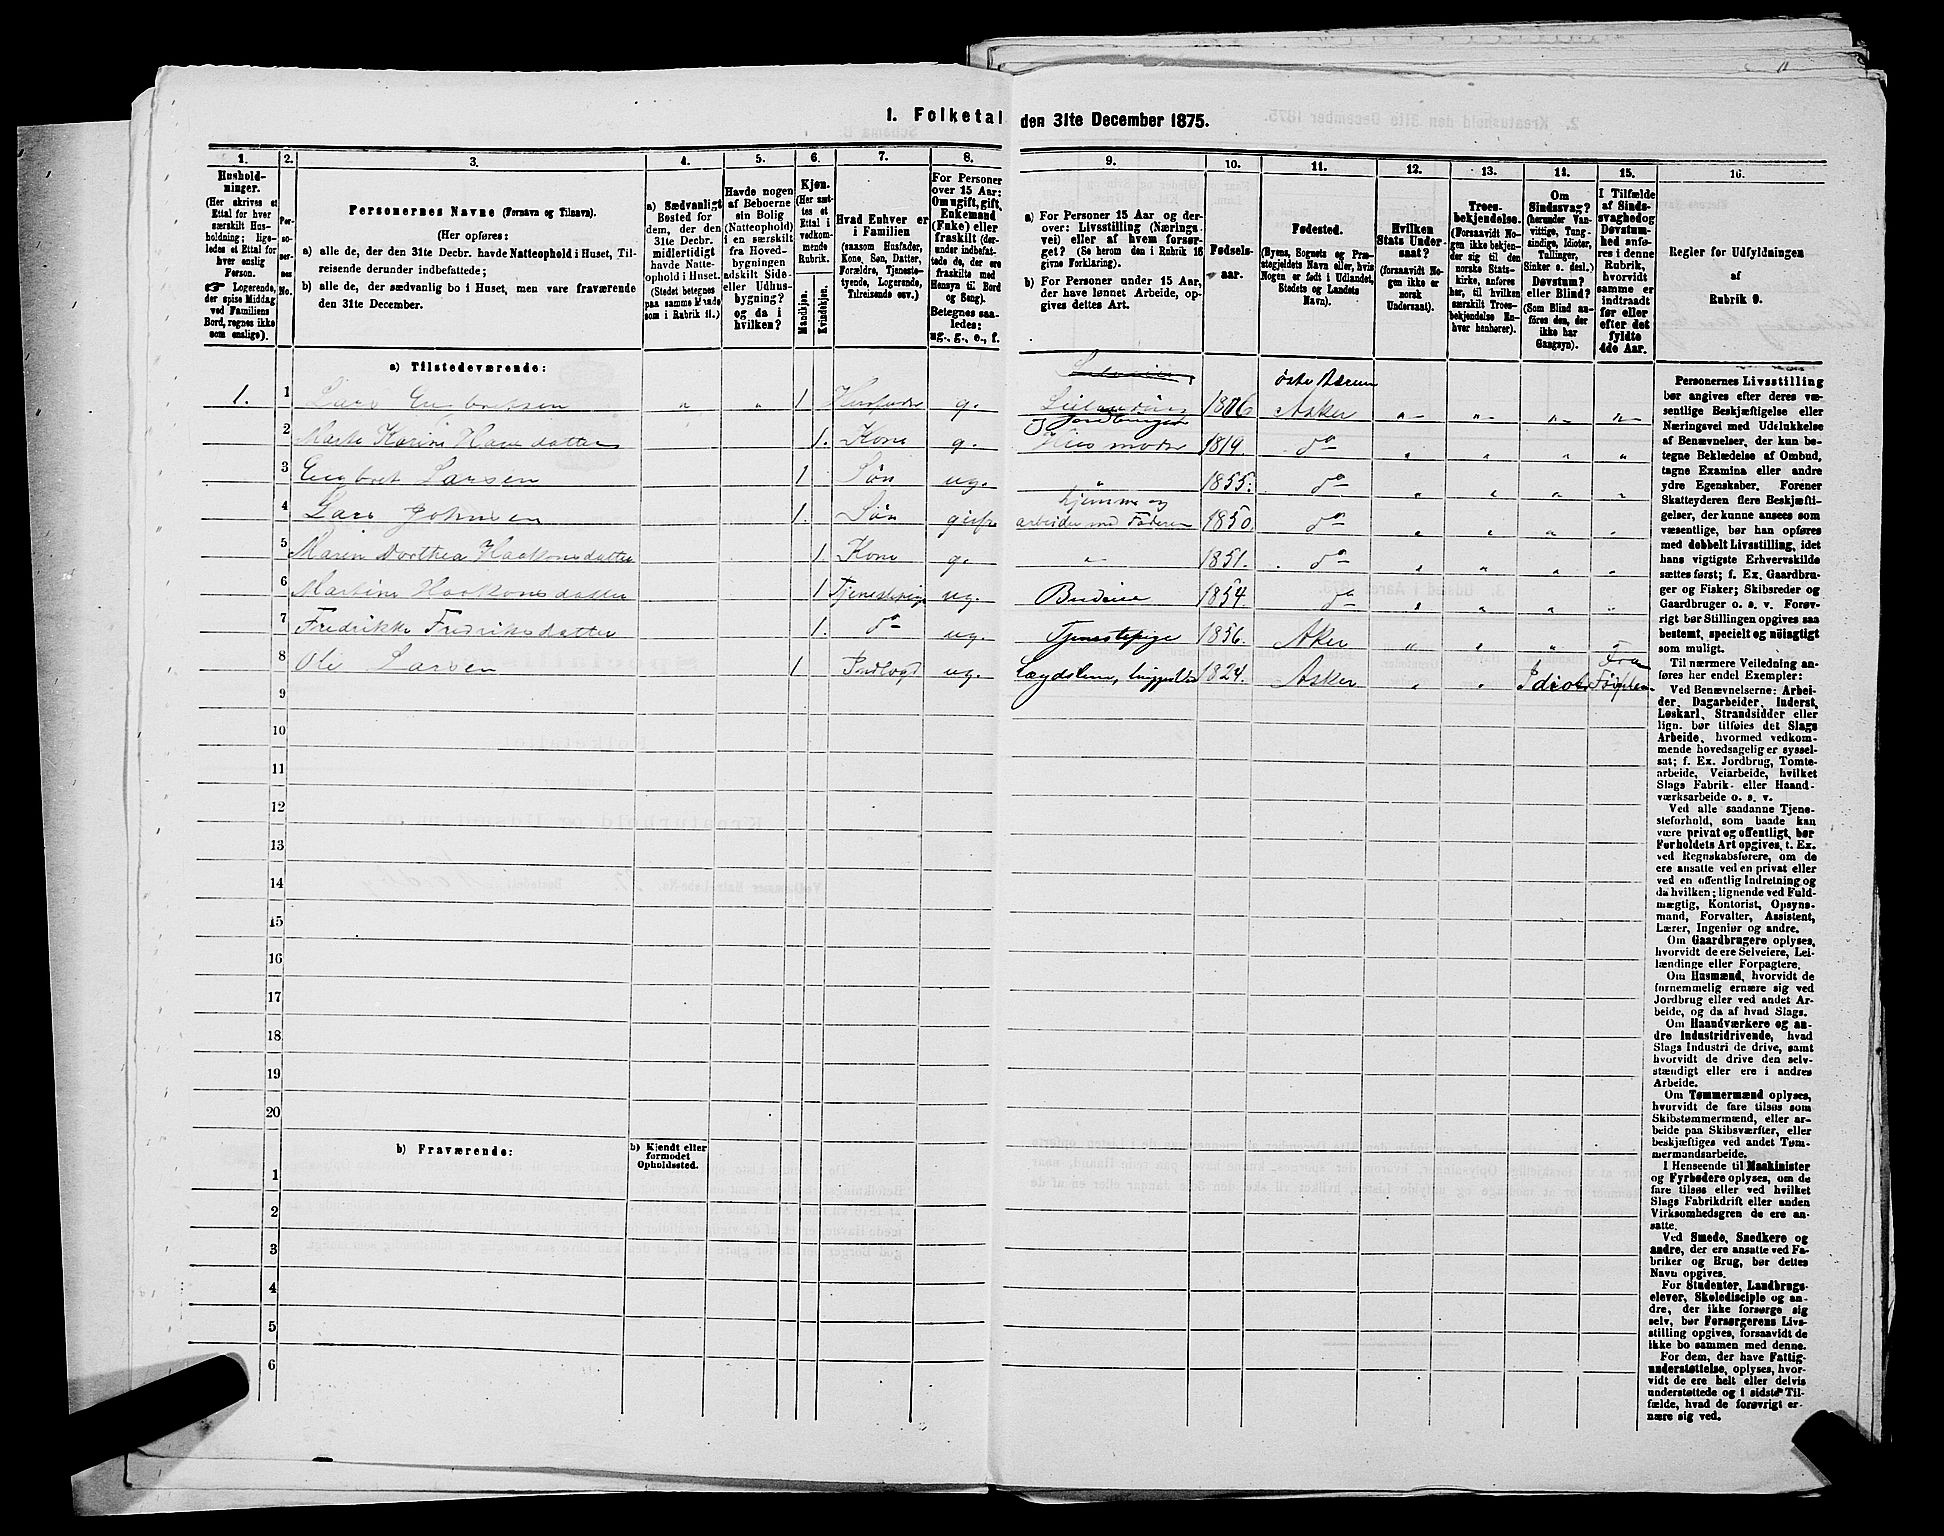 1. Folketal den 31te December 1875.
1. 2. 3. 4. 5. 6. 7. 8. 9. 10. 11. 12. 13. 14. 15. 16.
Hushold-
ninger.
(Her skrives et
Ettal for hver
særskilt Hus-
holdning; lige-
ledes et Ettal
for hver enslig
Person.
☛ Logerende,
der spise Middag
ved Familiens
Bord, regnes ikke
som enslige).
Per-
so-
ner-
nes
No.
Personernes Navne (Fornavn og Tilnavn).
(Her opføres:
a) alle de, der den 31te Decbr. havde Natteophold i Huset, Til-
reisende derunder indbefattede;
b) alle de, der sædvanlig bo i Huset, men vare fraværende
den 31te December.
a) Sædvanligt
Bosted for
dem, der den
31te Decbr.
midlertidigt
havde Natte-
ophold i Huset.
(Stedet betegnes
paa samme Maade
som i Rubrik 11.)
Havde nogen
af Beboerne
sin Bolig
(Natteophold)
i en særskilt
fra Hoved-
bygningen
adskilt Side-
eller Udhus-
bygning?
og da i
hvilken?
Kjøn.
(Her sæt-
tes et
Ettal i
vedkom-
mende
Rubrik.
Mandkjøn.
Kvindekjøn.
Hvad Enhver er
i Familien
(saasom Husfader,
Kone, Søn, Datter,
Forældre, Tjeneste-
tyende, Logerende,
Tilreisende osv.)
For Personer
over 15 Aar:
Om ugift, gift,
Enkemand
(Enke) eller
fraskilt (der-
under indbefat-
tede de, der ere
fraskilte med
Hensyn til Bord
og Seng).
Betegnes saa-
ledes:
ug., g., e., f.
a) For Personer 15 Aar og der-
over: Livsstilling (Nærings-
vei) eller af hvem forsør-
get? (Se herom den i Rubrik 16
givne Forklaring).
b) For Personer under 15 Aar,
der have lønnet Arbeide, op-
gives dettes Art.
Fødsels-
aar.
Fødested.
(Byens, Sognets og Præ-
stegjeldets Navn eller, hvis
Nogen er født i Udlandet,
Stedets og Landets
Navn).
Hvilken
Stats Under-
saat?
(forsaavidt No-
gen ikke er
norsk
Undersaat).
Troes-
bekjendelse.
(Forsaavidt No-
gen ikke bekjen-
der sig til den
norske Stats-
kirke, anføres
her, til hvilken
særskilt Troes-
bekjendelse En-
hver henhører).
Om
Sindssvag?
(herunder Van-
vittige, Tung-
sindige, Idioter,
Tullinger,
Sinker o. desl.)
Døvstum?
eller Blind?
(Som Blind an-
føres den, der
ikke har
Gangsyn).
I Tilfælde
af Sinds-
svaghed og
Døvstum-
hed anfø-
res i denne
Rubrik,
hvorvidt
samme er
indtraadt
før eller
efter det
fyldte
4de Aar.
Regler for Udfyldningen
af
Rubrik 9.
a) Tilstedeværende:
1. 1 Lars Engbretsen " " 1 Husfader g. Leilænding og Jordbruger 1806 østre Bærum Asker " " " "
2 Marte Karine Hans datter 1. Kone g. Huusmoder 1819. do " " " "
3 Engbret Larsen 1 Søn ug. " 1855. do " " " "
4 Lars Johnsen 1. Søn gift hjemme og
arbeider med Faderen 1850. do " " " "
5 Maren Dorthea Haakonsdatter 1. Kone g. " 1851. do " " " "
6 Martine Haakonsdatter 1 Tjenestepige ug. Budeie 1854. do " " " "
7 Fredrikke Fredriksdatter 1. do ug. Tjenestepige 1856. Aker " " "
8 Ole Larsen 1 Indlagt ug. 1824. Asker " " Idiot Fra Fødselen
9
10
11
12
13
14
15
16
17
18
19
20
b) Fraværende: b) Kjendt eller
formodet
Opholdssted.
1
2
3
4
5
6
Personernes Livsstilling
bør angives efter deres væ-
sentlige Beskjæftigelse eller
Næringsvei med Udelukkelse
af Benævnelser, der kun be-
tegne Beklædelse af Ombud,
tagne Examina eller andre
ydre Egenskaber. Forener
Skatteyderen flere Beskjæfti-
gelser, der kunne ansees som
væsentlige, bør han opføres
med dobbelt Livsstilling, idet
hans vigtigste Erhvervskilde
sættes først; f. Ex. Gaardbru-
ger og Fisker; Skibsreder og
Gaardbruger o. s. v. Forøv-
rigt bør Stillingen opgives saa
bestemt, specielt og nøiagtigt
som muligt.
Til nærmere Veiledning an-
føres her endel Exempler:
Ved Benævnelserne: Arbei-
der, Dagarbeider, Inderst,
Løskarl, Strandsidder eller
lign. bør tilføies det Slags
Arbeide, hvormed vedkom-
mende hovedsagelig er syssel-
sat; f. Ex. Jordbrug, Tomte-
arbeide, Veiarbeide, hvilket
Slags Fabrik- eller Haand-
værksarbeide o. s. v.
Ved alle saadanne Tjene-
steforhold, som baade kan
være privat og offentligt, bør
Forholdets Art opgives, t. Ex.
ved Regnskabsførere, om de
ere ansatte ved en privat eller
ved en offentlig Indretning og
da hvilken; lignende ved Fuld-
mægtig, Kontorist, Opsyns-
mand, Forvalter, Assistent,
Lærer, Ingeniør og andre.
Om Gaardbrugere oplyses,
hvorvidt de ere Selveiere, Lei-
lændinge eller Forpagtere.
Om Husmænd, hvorvidt de
fornemmelig ernære sig ved
Jordbrug eller ved andet Ar-
beide, og da af hvad Slags.
Om Haandværkere og an-
dre Industridrivende, hvad
Slags Industri de drive, samt
hvorvidt de drive den selv-
stændigt eller ere i andres
Arbeide.
Om Tømmermænd oplyses,
hvorvidt de fare tilsøs som
Skibstømmermænd, eller ar-
beide paa Skibsværfter, eller
beskjæftiges ved andet Tøm-
mermandsarbeide.
I Henseende til Maskinister
og Fyrbødere oplyses, om de
fare tilsøs eller ved hvilket
Slags Fabrikdrift eller anden
Virksomhedsgren de ere an-
satte.
Ved Smede, Snedkere og
andre, der ere ansatte ved Fa-
briker og Brug, bør dettes
Navn opgives.
For Studenter, Landbrugs-
elever, Skoledisciple og an-
dre, der ikke forsørge sig
selv, bør Forsørgerens Livs-
stilling opgives, forsaavidt de
ikke bo sammen med denne.
For dem, der have Fattig-
understøttelse, oplyses, hvor-
vidt de ere helt eller delvis
understøttede og i sidste Til-
fælde, hvad de forøvrigt er-
nære sig ved.